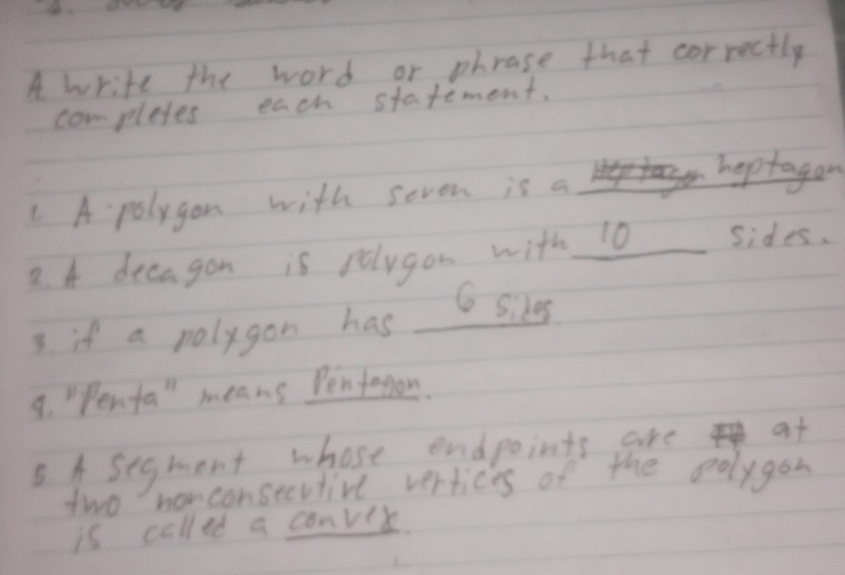 A write the word or phrase that correctly
completes each statement.
1. A polygon with seven is a heptagon
2. A decagon is polygon with 10 sides.
3. if a polygon has 6 sides
4. "Penta" means Pentagon.
5. A segment whose endpoints are at
two nonconsecutive vertices of the polygon
is called a convex.